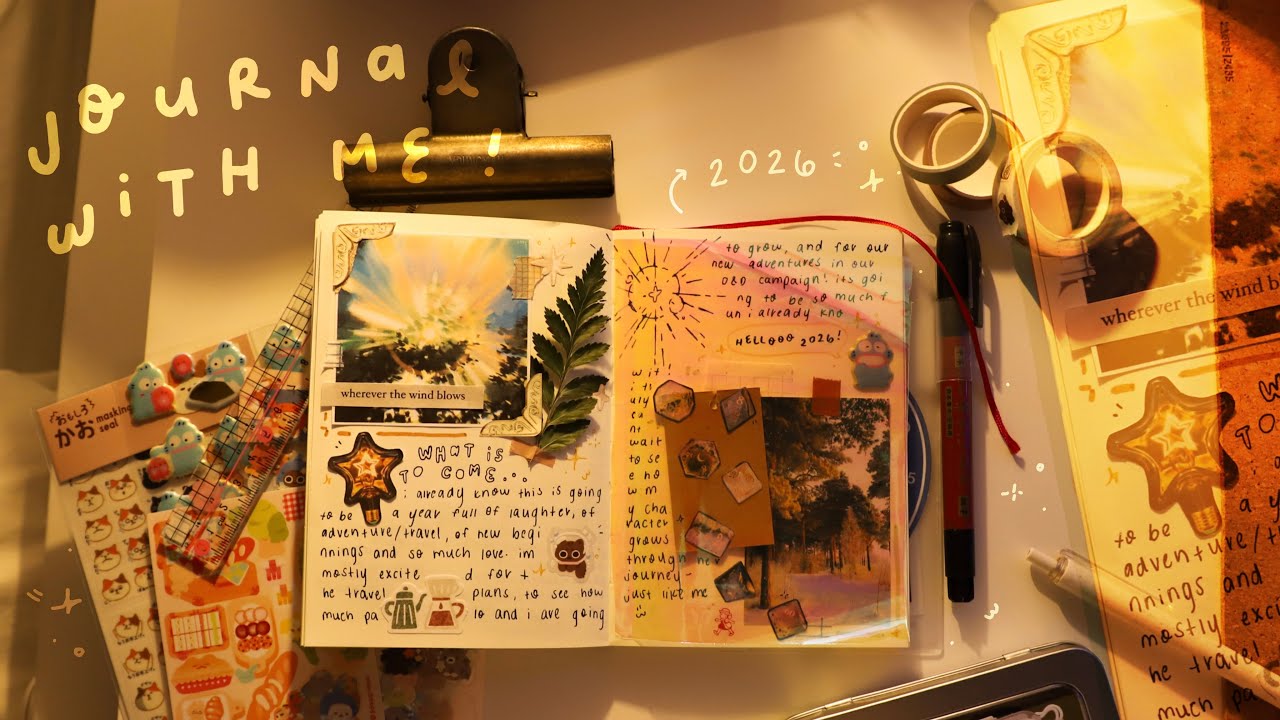 JOURNAL
WITH ME!
2026:
wherever the wind blows
WHAT IS
TO COME...
i already know this is going
to be a year full of laughter, of
adventure/travel, of new begi
nnings and so much love. im
mostly excite d for t
he travel plans, to see how
much pa lo and i are going
to grow, and for our
new adventures in our
D&D campaign! its goi
ng to be so much f
un i already kno
HELLOOO 2026!
w it
i tr
uly
ca
nt
wait
to se
e ho
w m
y cha
racter
grows
through
journey-
just like me
おもしろ
かお masking
seal
wherever the wind b
W
TO
to be a y
adventure/
nnings and
mostly exci
he travel
much pa